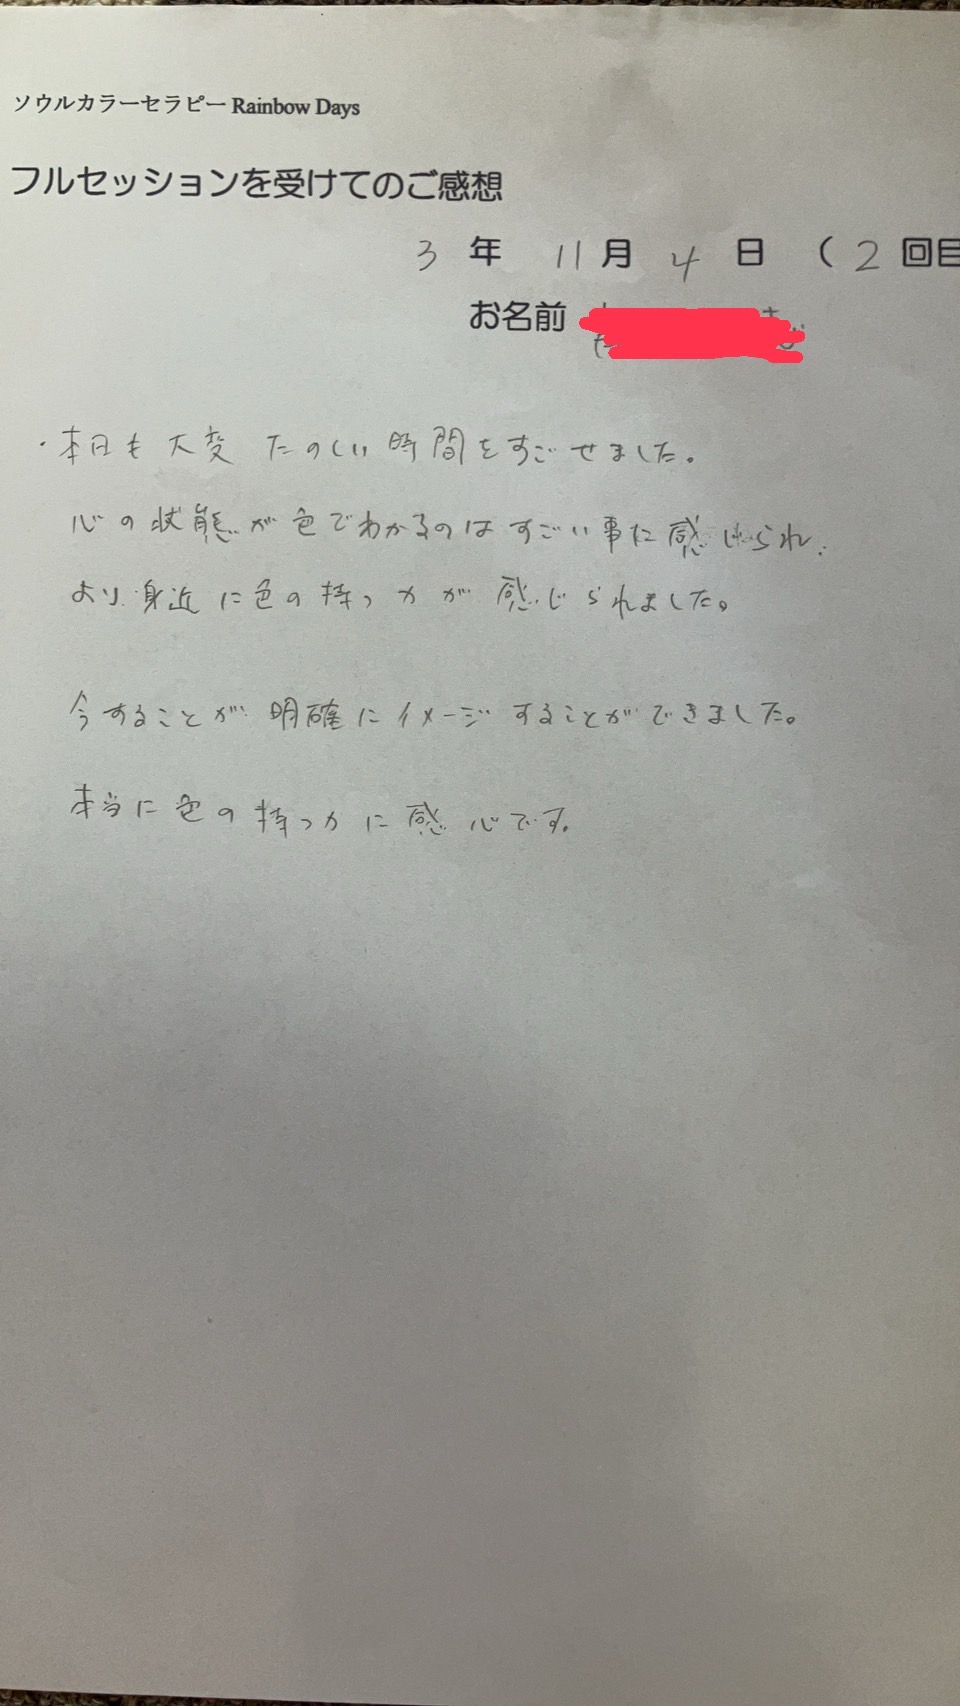 ソウルカラーセラピー Rainbow Days
フルセッションを受けてのご感想
3 年 11 月 4 日 ( 2 回目
お名前
・本日も大変たのしい時間をすごせました。
心の状態が色でわかるのはすごい事に感じられ、
より身近に色の持つ力が感じられました。
今することが明確にイメージすることができました。
本当に色の持つ力に感心です。